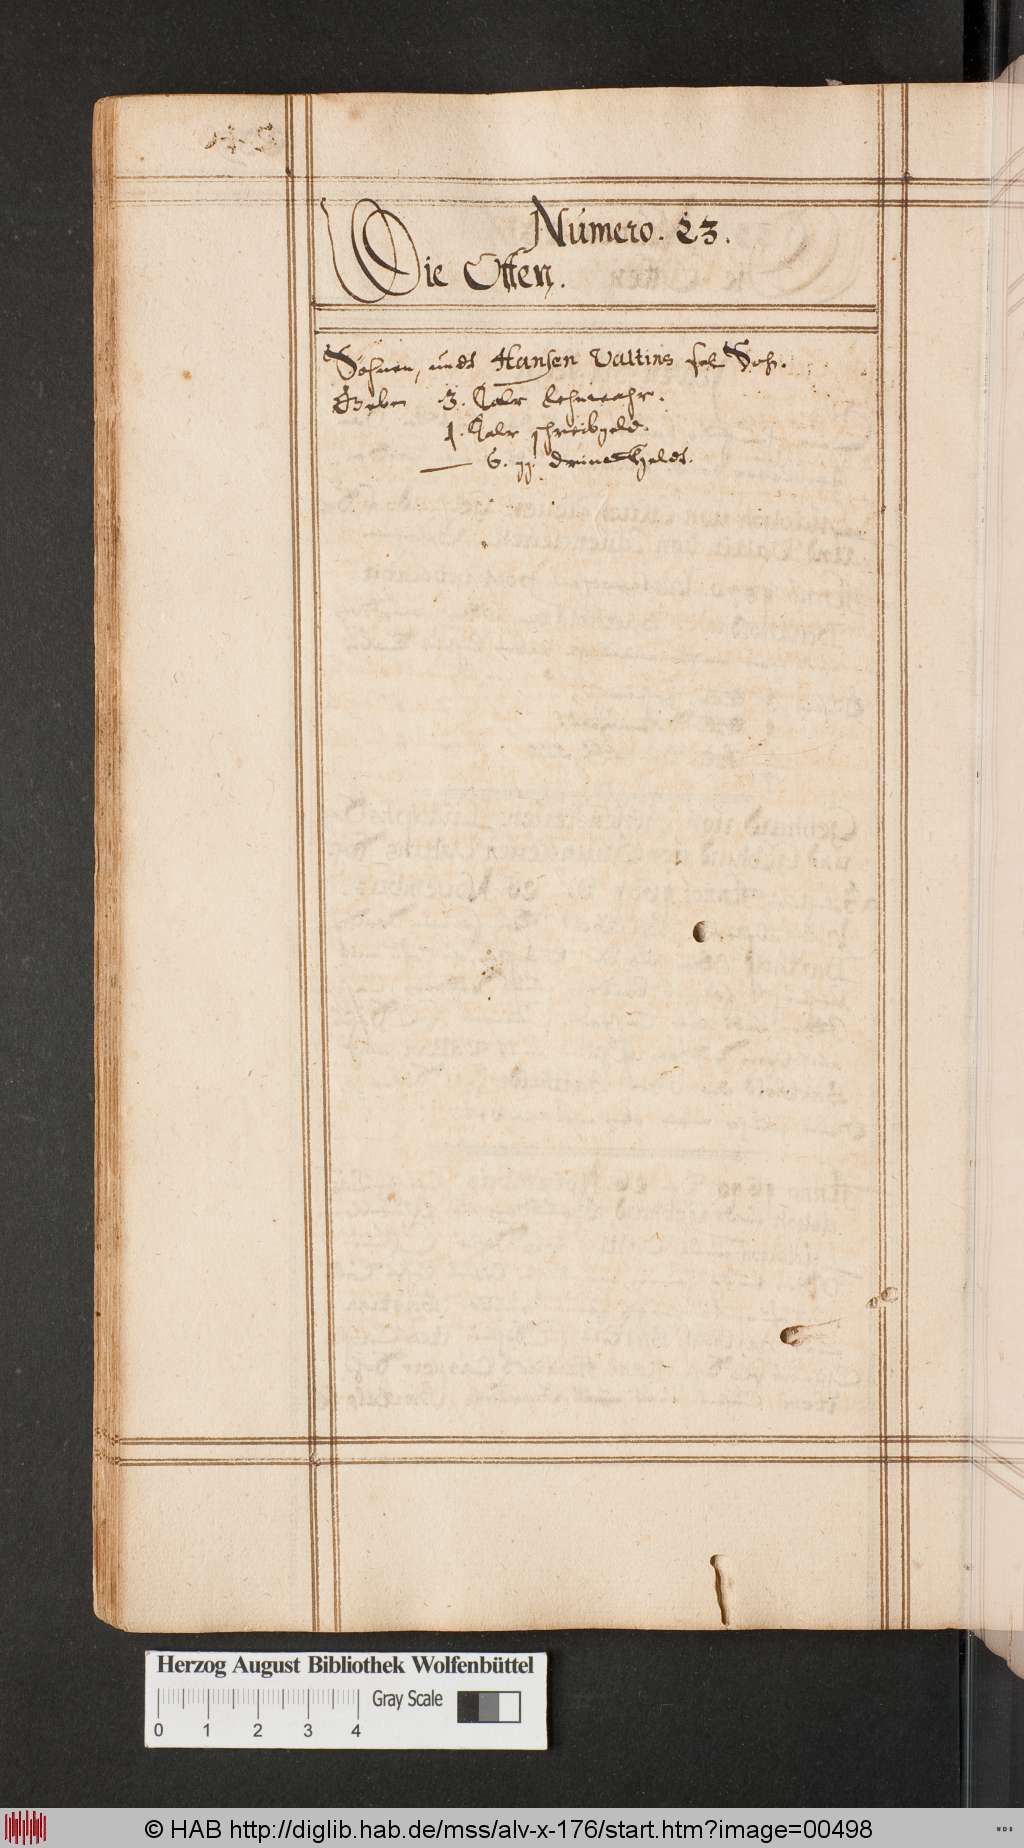 Número. 23.
Die Otten.
Söhnen, undt Hansen Valtins sel Sohn.
Geben 3. Talr Lehnwahr.
1. Talr schreibgeld.
6. gg. drinckgeldt.
Herzog August Bibliothek Wolfenbüttel
Gray Scale
0 1 2 3 4
© HAB http://diglib.hab.de/mss/alv-x-176/start.htm?image=00498